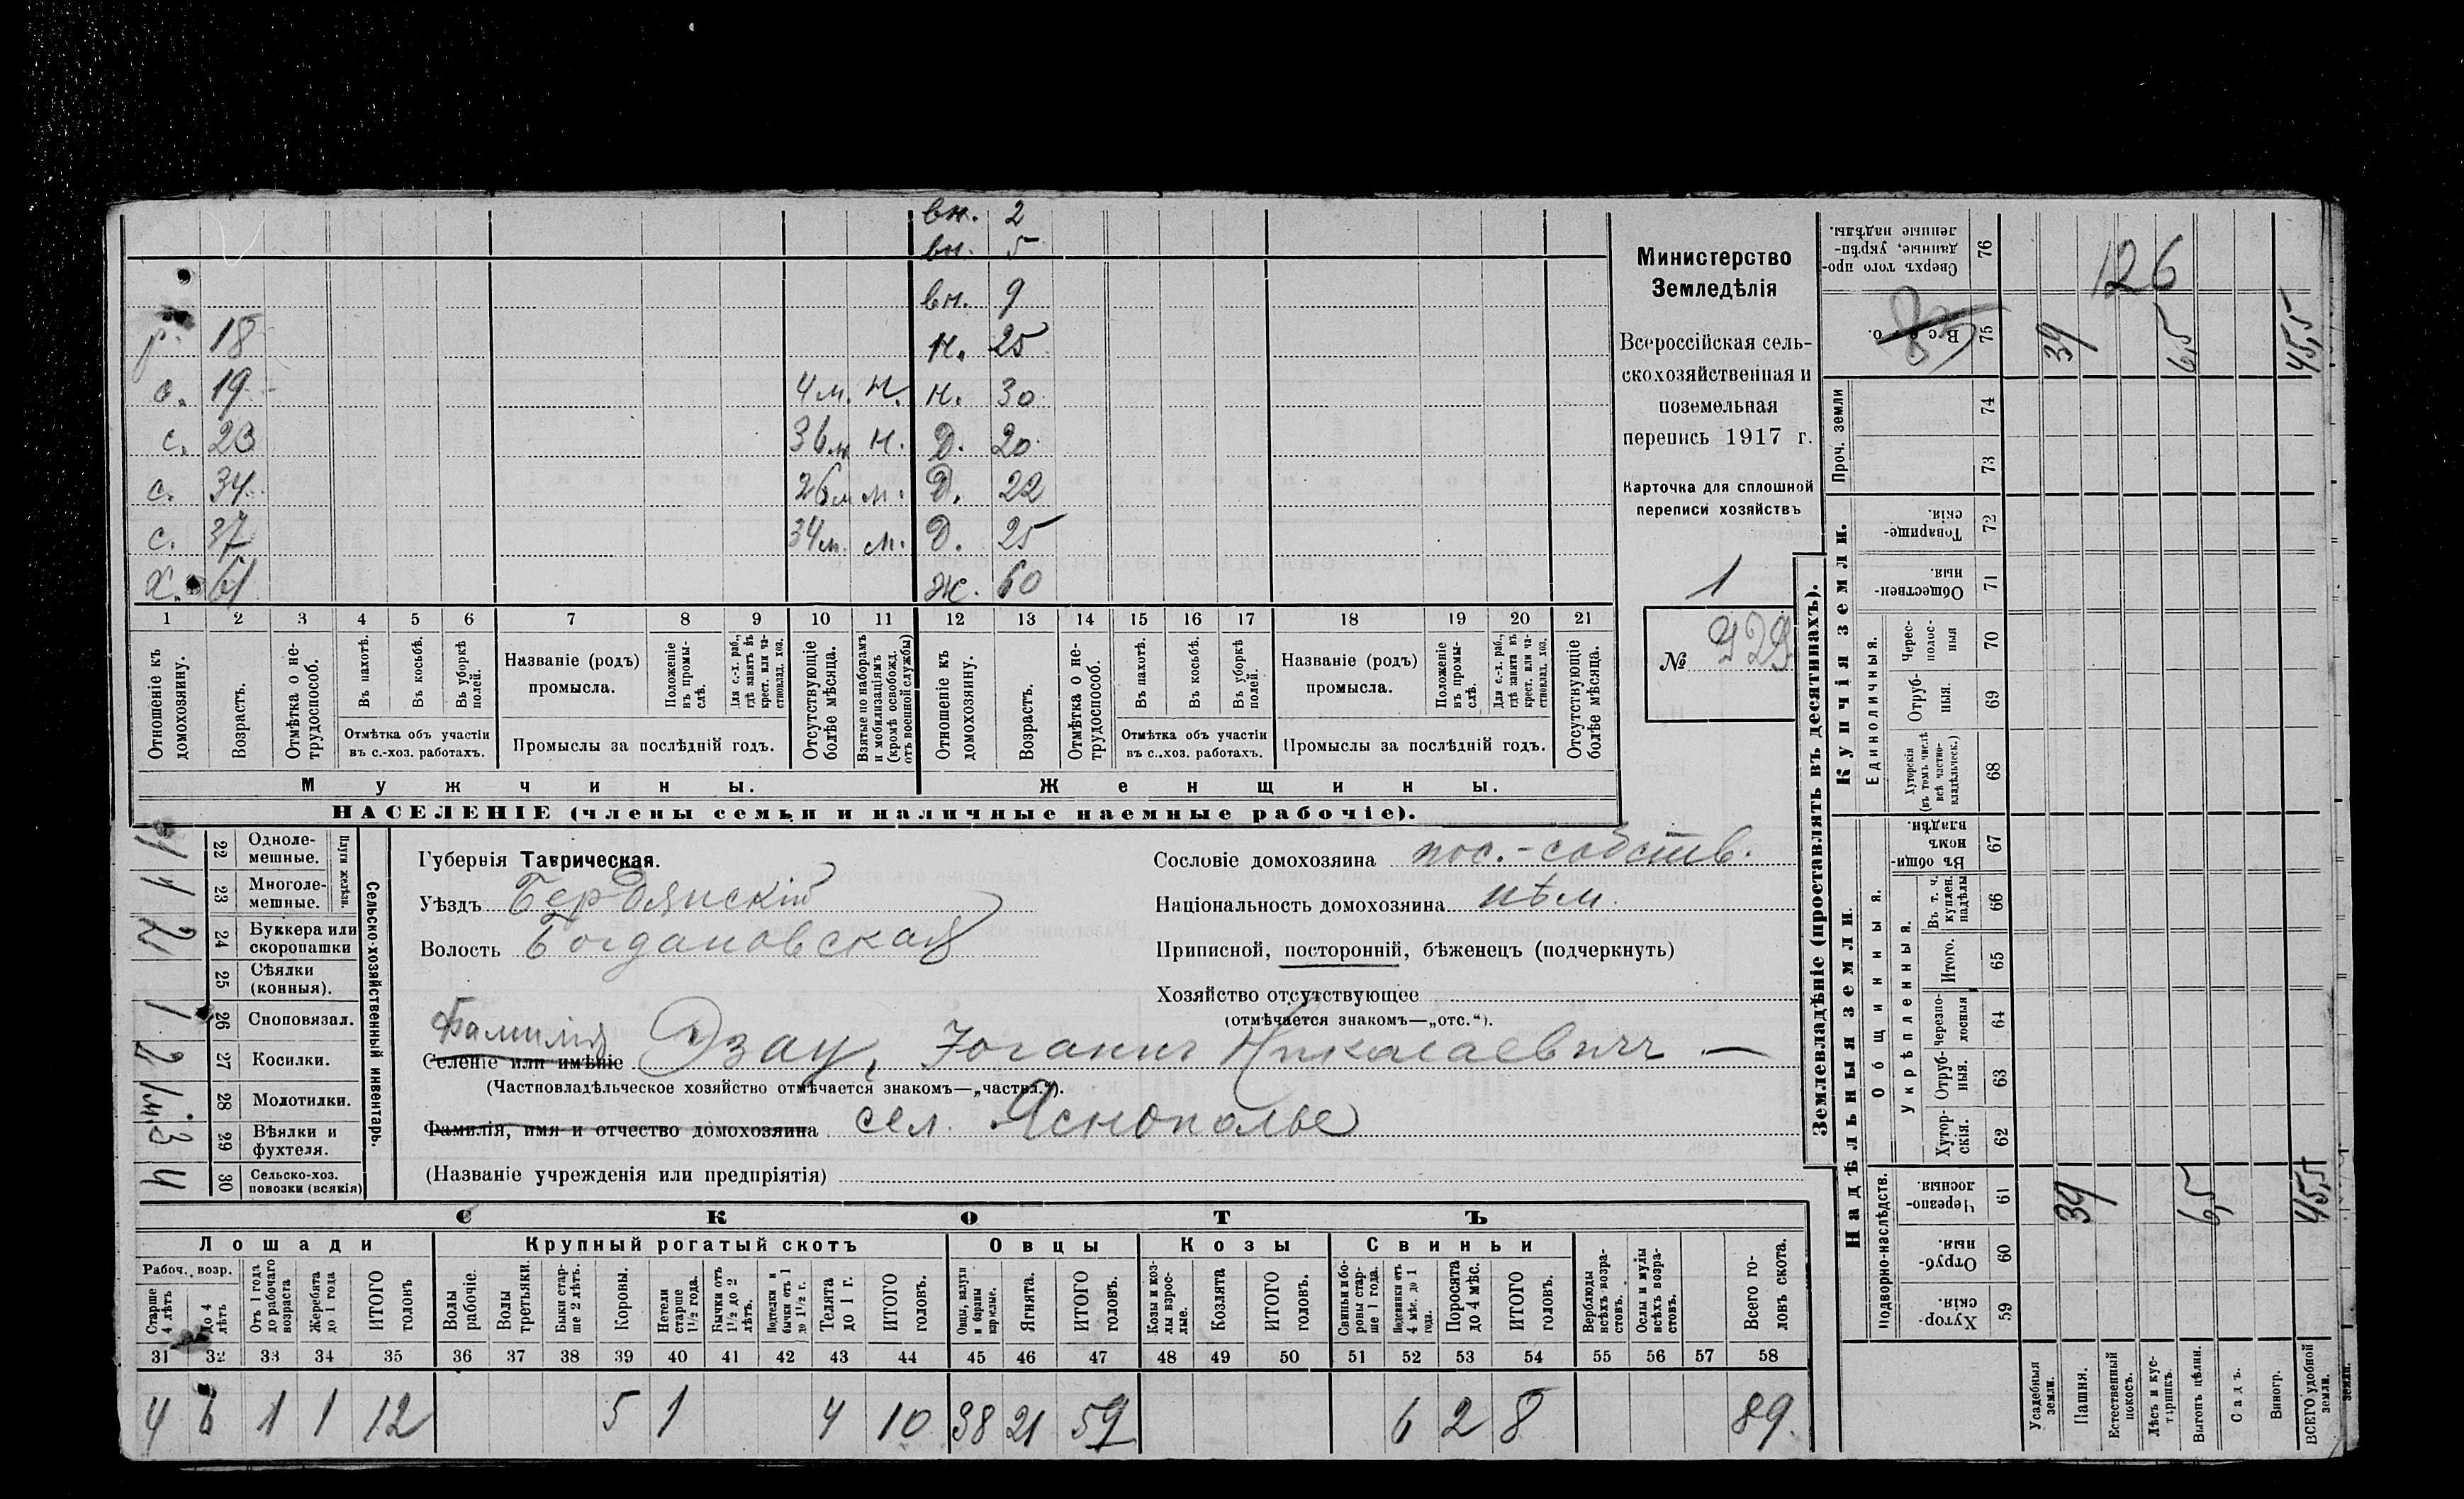 вн. 2
вн. 5
вн. 9
р. 18 н. 25
с. 19 4 м. н. н. 30
с. 23 36 м н. Д. 20
с. 34 26 м м. Д. 22
с. 37 34 м. м. Д. 25
Х. 61 ж. 60
1 2 3 4 5 6 7 8 9 10 11 12 13 14 15 16 17 18 19 20 21
Отношеніе къ домохозяину.
Возрастъ.
Отмѣтка о не-трудоспособ.
Въ пахотѣ.
Въ косьбѣ.
Въ уборкѣ полей.
Отмѣтка объ участіи
въ с.-хоз. работахъ.
Названіе (родъ)
промысла.
Положеніе въ промы-слѣ.
Для с.-х. раб., гдѣ занятъ въ крест. или ча-стновлад. хоз.
Промыслы за послѣдній годъ.
Отсутствующіе болѣе мѣсяца.
Взятые по наборамъ и мобилизаціямъ (кромѣ освобожд. отъ военной службы)
Отношеніе къ домохозяину.
Возрастъ.
Отмѣтка о не-трудоспособ.
Въ пахотѣ.
Въ косьбѣ.
Въ уборкѣ полей.
Отмѣтка объ участіи
въ с..хоз. работахъ.
Названіе (родъ)
промысла.
Положеніе въ промы-слѣ.
Для с.-х. раб., гдѣ занята въ крест. или ча-стновлад. хоз.
Промыслы за послѣдній годъ.
Отсутствующіе болѣе мѣсяца.
Мужчины. Женщины.
НАСЕЛЕНІЕ (члены семьи и наличные наемные рабочіе).
Министерство
Земледѣлія
Всероссійская сель-
скохозяйственная и
поземельная
перепись 1917 г.
Карточка для сплошной
переписи хозяйствъ
1
№
Сельско-хозяйственный инвентарь.
Плуги желѣзн.
22 Одноле-мешные. 1
23 Многоле-мешные. 1
24 Буккера или скоропашки
25 Сѣялки (конныя).
26 Сноповязал. 1
27 Косилки. 2
28 Молотилки.
29 Вѣялки и фухтеля. 3
30 Сельско-хоз. повозки (всякія) 4
Губернія Таврическая.
Уѣздъ Бердянскій
Волость Богдановская
Сословіе домохозяина пос.-собств.
Національность домохозяина нѣм.
Приписной, посторонній, бѣженецъ (подчеркнуть)
Хозяйство отсутствующее
(отмѣчается знакомъ—„отс.“).
Фамилія
Селеніе или имѣніе Дзау, Іоганнъ Николаевичъ —
(Частновладѣльческое хозяйство отмѣчается знакомъ—„частвл.“).
Фамилія, имя и отчество домохозяина сел. Яснополье
(Названіе учрежденія или предпріятія)
СКОТЪ
Лошади Крупный рогатый скотъ Овцы Козы Свиньи
Рабоч. возр.
Старше 4 лѣтъ
до 4 лѣтъ
Отъ 1 года до рабочаго возраста
Жеребята до 1 года
ИТОГО головъ
Волы рабочіе.
Волы третьяки.
Быки стар-ше 2 лѣтъ.
Коровы.
Нетели старше 1 1/2 года.
Бычки отъ 1 1/2 до 2 лѣтъ.
Подтелки и бычки отъ 1 до 1 1/2 г.
Телята до 1 г.
ИТОГО головъ.
Овцы, валухи и бараны взрослые.
Ягнята.
ИТОГО головъ.
Козы и коз-лы взрос-лые.
Козлята
ИТОГО головъ.
Свиньи и бо-ровы стар-ше 1 года.
Подсвинки отъ 4 мѣс. до 1 года.
Поросята до 4 мѣс.
ИТОГО головъ.
Верблюды всѣхъ возра-стовъ.
Ослы и мулы всѣхъ возра-стовъ.
Всего го-ловъ скота.
31 32 33 34 35 36 37 38 39 40 41 42 43 44 45 46 47 48 49 50 51 52 53 54 55 56 57 58
4 6 1 1 12 5 1 4 10 38 21 59 6 2 8 89.
Землевладѣніе (проставлять въ десятинахъ).
Купчія земли.
Надѣльныя земли.
Сверхъ того про-данные, укрѣп-ленные надѣлы. 76
126
Всего. 75 39 6,5 45,5
Проч. земли 74 73
Товарище-скія. 72
Обществен-ныя. 71
Единоличныя.
Черес-полос-ныя 70
Отруб-ныя. 69
Хуторскія (въ томъ числѣ всѣ частно-владѣльческ.) 68
Общинныя.
Въ общин-номъ владѣн. 67
Укрѣпленныя.
Въ т. ч. куплен. надѣлы 66
Итого. 65
Черезпо-лосныя 64
Отруб-ныя. 63
Хутор-скія. 62
Подворно-наслѣдств.
Черезпо-лосныя. 61 39 6,5 45,5
Отруб-ныя. 60
Хутор-скія. 59
Усадебныя земли.
Пашня.
Естественный покосъ.
Лѣсъ и кус-тарникъ.
Выгонъ цѣлин.
Садъ.
Виногр.
ВСЕГО удобной земли.